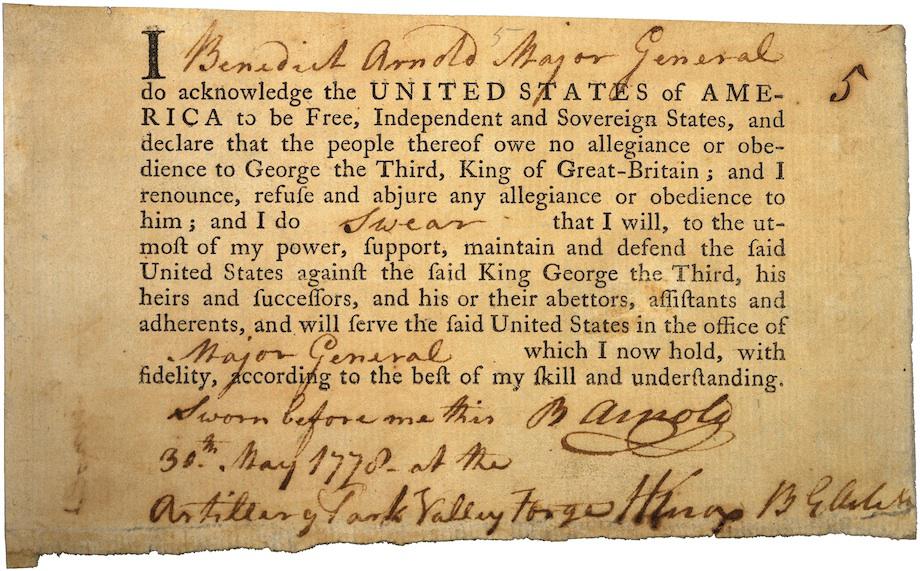 I Benedict Arnold 5 Major General
5
do acknowledge the UNITED STATES of AME-
RICA to be Free, Independent and Sovereign States, and
declare that the people thereof owe no allegiance or obe-
dience to George the Third, King of Great-Britain; and I
renounce, refuſe and abjure any allegiance or obedience to
him; and I do Swear that I will, to the ut-
moſt of my power, ſupport, maintain and defend the ſaid
United States againſt the ſaid King George the Third, his
heirs and ſucceſſors, and his or their abettors, aſſiſtants and
adherents, and will ſerve the ſaid United States in the office of
Major General which I now hold, with
fidelity, according to the beſt of my ſkill and underſtanding.
Sworn before me this B Arnold
30th May 1778 - at the
Artillery Park Valley Forge HKnox B G